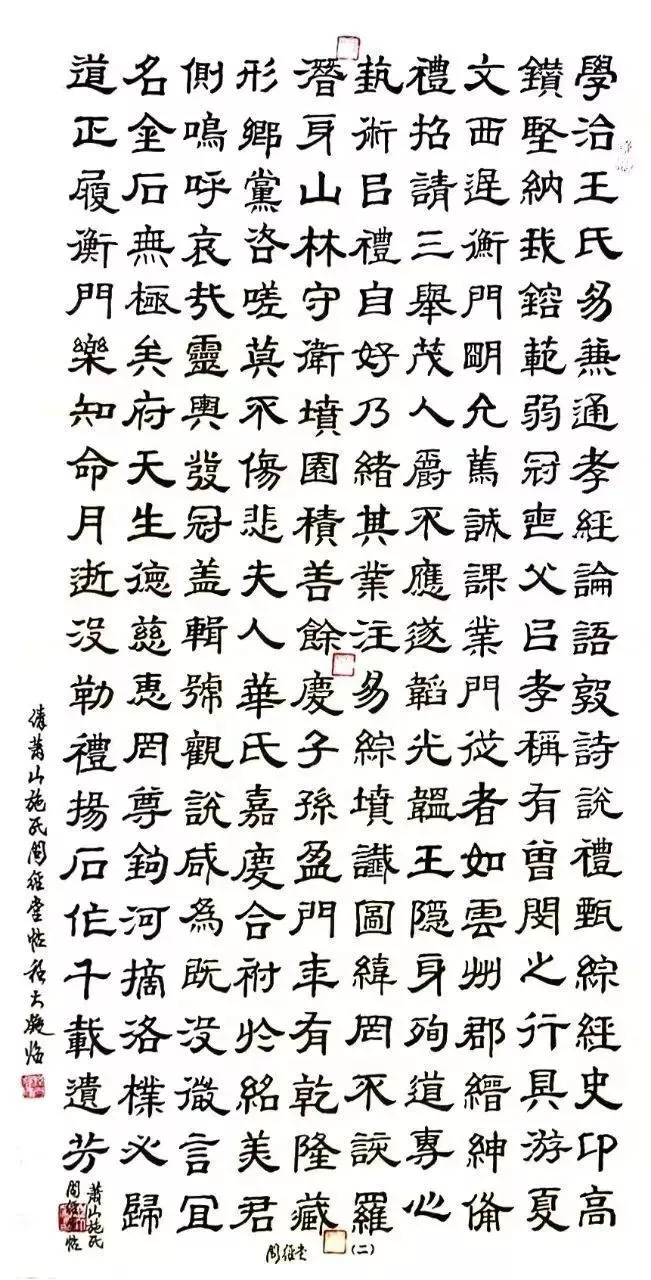 學治王氏易兼通孝經論語敦詩說禮甄綜經史卬高
鑽堅納我鎔範弱冠喪父㠯孝稱有曾閔之行具游夏
文西遟衡門朙允篤誠課業門從者如雲州郡縉紳俻
禮招請三舉茂人爵不應遂韜光韞王隱身殉道專心
埶術㠯禮自好乃緒其業注易綜墳讖圖緯罔不詼羅
潛身山林守衛墳園積善餘慶子孫盈門年有乾隆藏
形鄉黨咨嗟莫不傷悲夫人華氏嘉慶合祔於銘美君
側嗚呼哀哉靈輿發冠盖輯號觀說咸為既沒微言宜
名金石無極矣府天生德慈惠罔尊鉤河摘洛樸必歸
道正履衡門樂知命月逝沒勒禮揚石作千載遺芳
蕭山施氏
閱經堂帖
清蕭山施氏閱經堂帖 臨
閱經堂 (二)